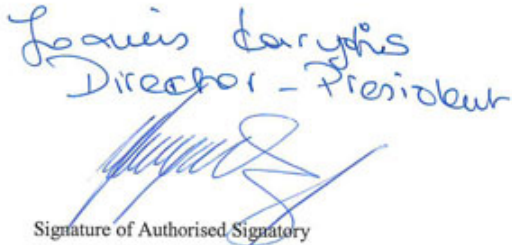 Ioannis Karydis
Director - President
Signature of Authorised Signatory